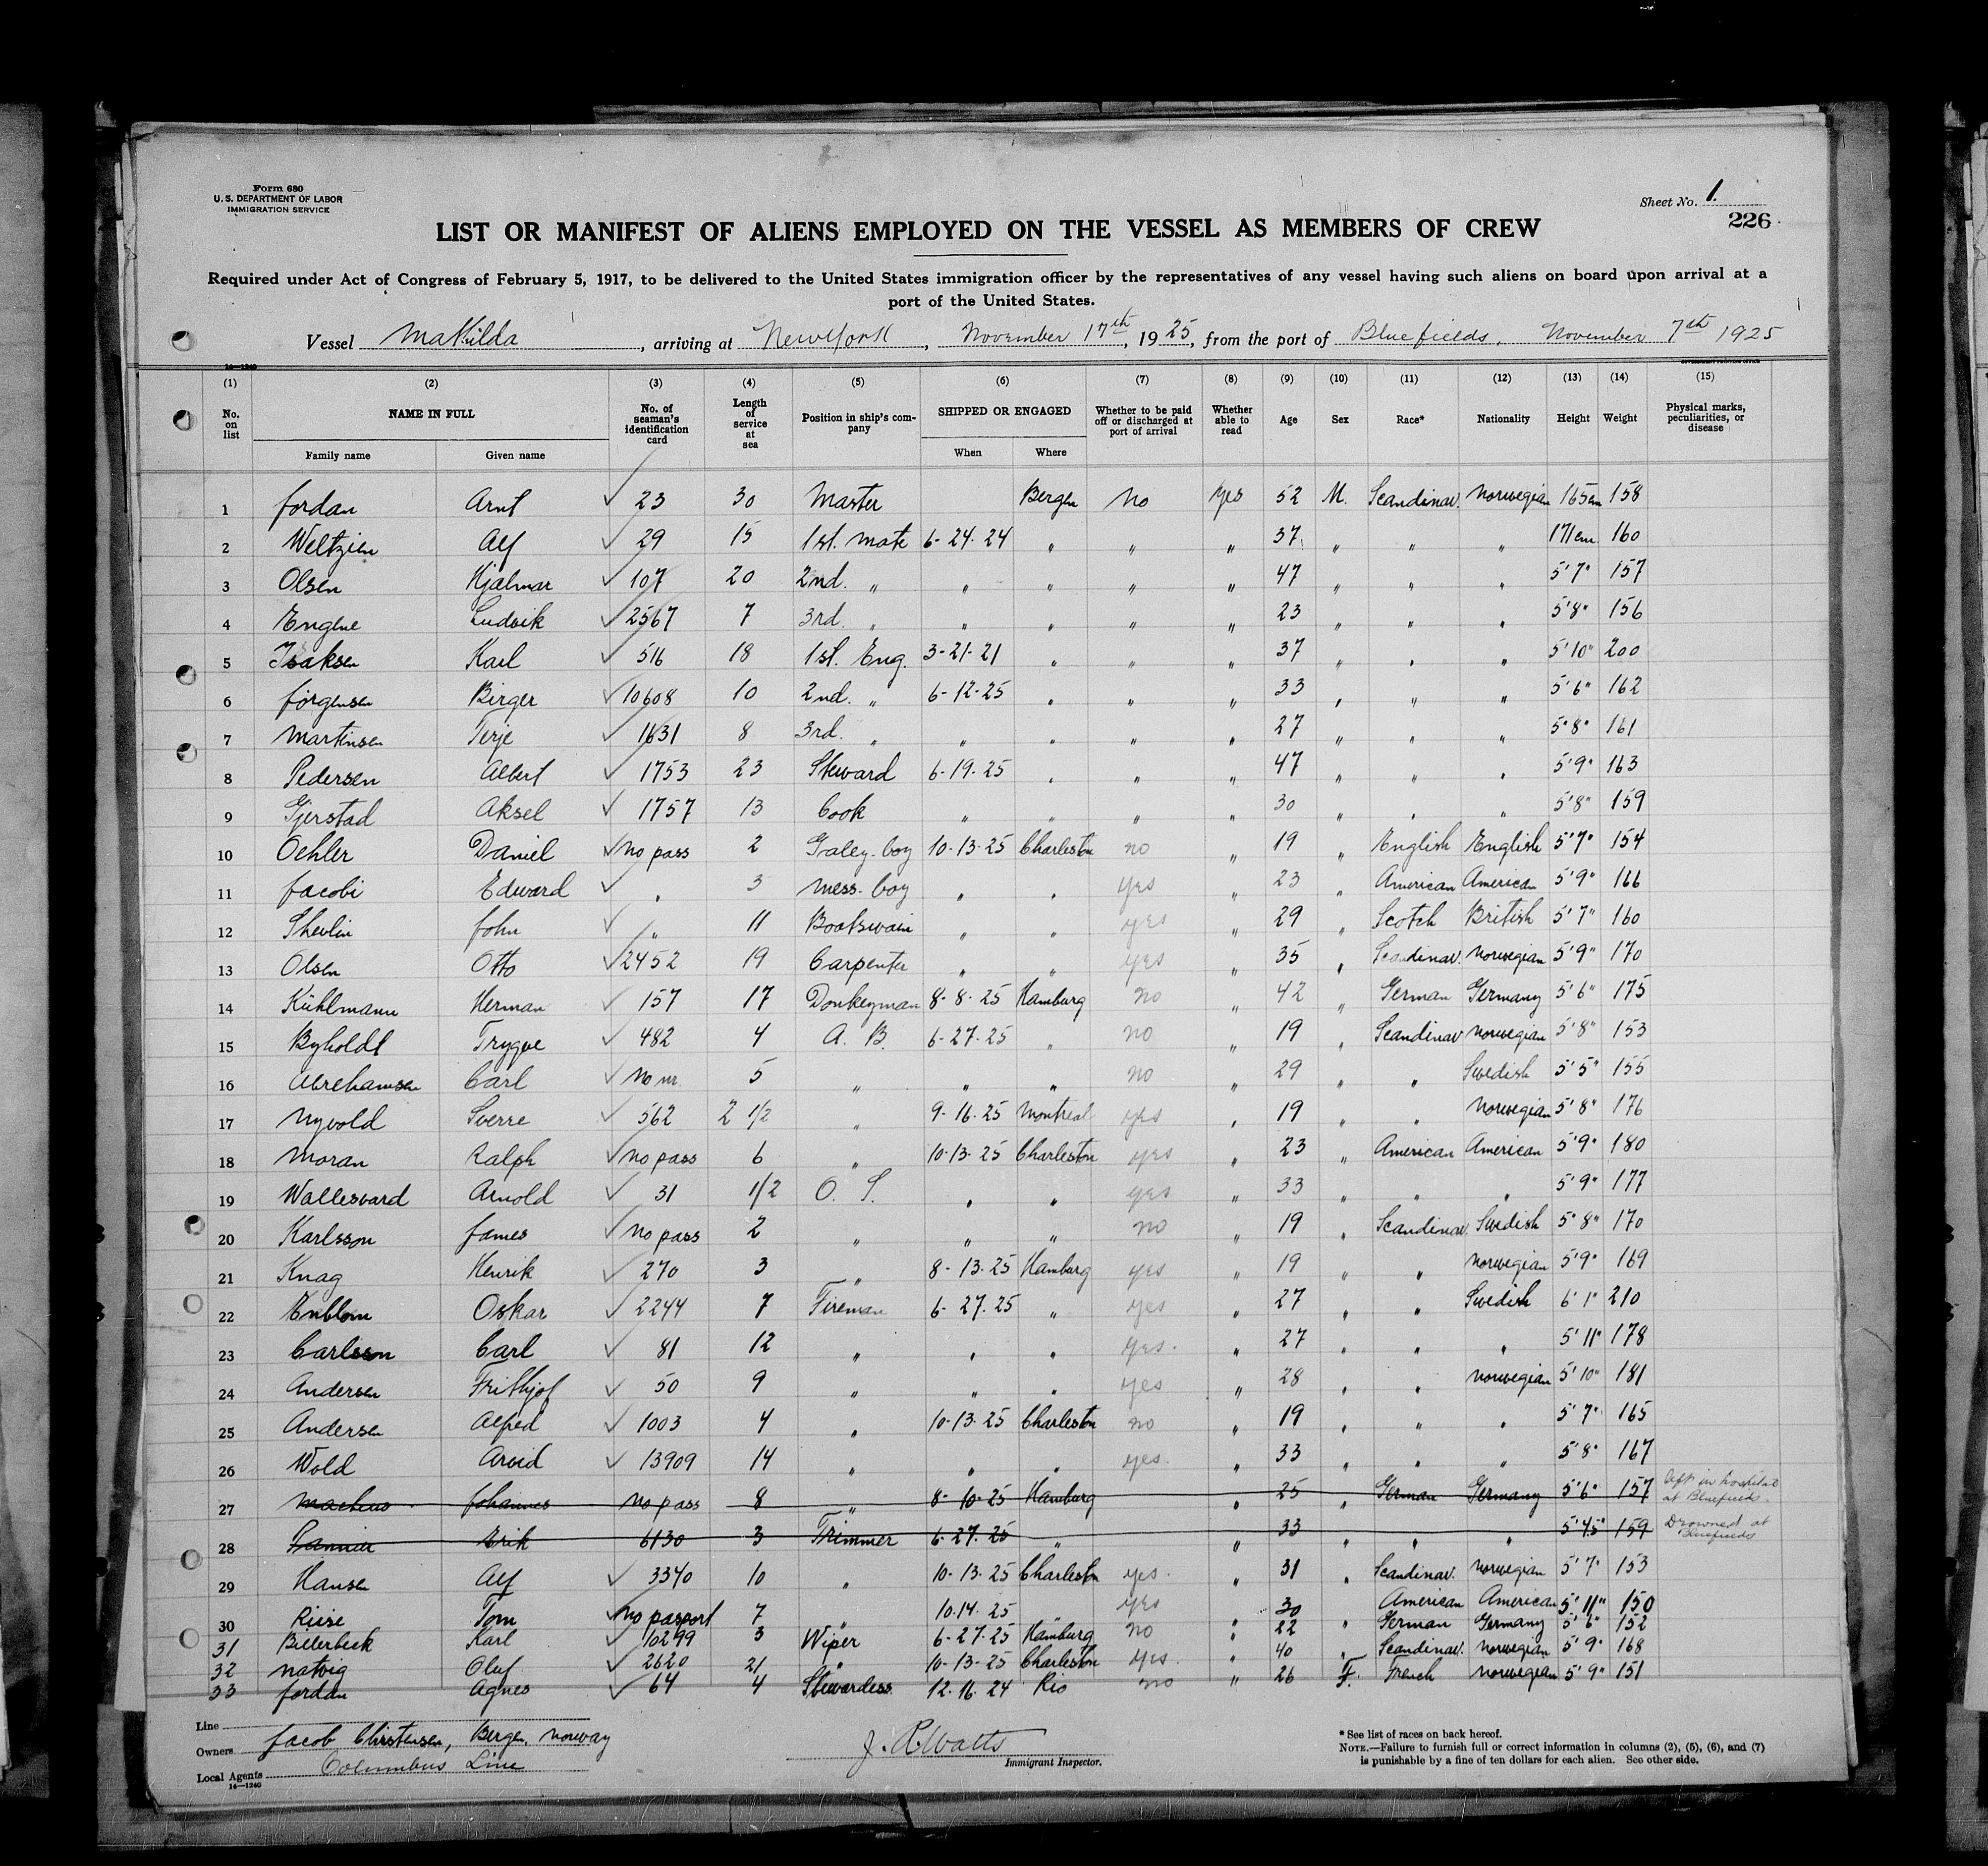 Form 680
U. S. DEPARTMENT OF LABOR
IMMIGRATION SERVICE
Sheet No. 1.
226
LIST OR MANIFEST OF ALIENS EMPLOYED ON THE VESSEL AS MEMBERS OF CREW
Required under Act of Congress of February 5, 1917, to be delivered to the United States immigration officer by the representatives of any vessel having such aliens on board upon arrival at a
port of the United States.
Vessel Mathilda, arriving at New York, November 17th, 1925, from the port of Bluefields, November 7th 1925
14—1240 GOVERNMENT PRINTING OFFICE
(1) (2) (3) (4) (5) (6) (7) (8) (9) (10) (11) (12) (13) (14) (15)
No. on list NAME IN FULL No. of seaman's identification card Length of service at sea Position in ship's company SHIPPED OR ENGAGED Whether to be paid off or discharged at port of arrival Whether able to read Age Sex Race* Nationality Height Weight Physical marks, peculiarities, or disease
Family name Given name When Where
1 Jordan Arnt ✓ 23 30 Master Bergen No Yes 52 M. Scandinav. Norwegian 165cm 158
2 Weltzien Alf ✓ 29 15 1st. mate 6-24-24 " " " 37 " " " 171cm. 160
3 Olsen Hjalmar ✓ 107 20 2nd. " " " " " 47 " " " 5'7" 157
4 Engene Ludvik ✓ 2567 7 3rd. " " " " " 23 " " " 5'8" 156
5 Isaksen Karl ✓ 516 18 1st. Eng. 3-21-21 " " " 37 " " " 5'10" 200
6 Jörgensen Birger ✓ 10608 10 2nd. " 6-12-25 " " " 33 " " " 5'6" 162
7 Martinsen Terje ✓ 1631 8 3rd. " " " " " 27 " " " 5'8" 161
8 Pedersen Albert ✓ 1753 23 Steward 6-19-25 " " " 47 " " " 5'9" 163
9 Gjerstad Aksel ✓ 1757 13 Cook " " " " 30 " " " 5'8" 159
10 Oehler Daniel ✓ No pass 2 Galey-boy 10-13-25 Charleston no " 19 " English English 5'7" 154
11 Jacobi Edward ✓ " 3 Mess-boy " " yes " 23 " American American 5'9" 166
12 Shevlin John ✓ " 11 Boatswain " " yes " 29 " Scotch British 5'7" 160
13 Olsen Otto ✓ 2452 19 Carpenter " " yes " 35 " Scandinav. Norwegian 5'9" 170
14 Kühlmann Herman ✓ 157 17 Donkeyman 8-8-25 Hamburg no " 42 " German Germany 5'6" 175
15 Byholdt Trygve ✓ 482 4 A. B. 6-27-25 " no " 19 " Scandinav Norwegian 5'8" 153
16 Abrehamsen Carl ✓ No nr. 5 " " " no " 29 " " Swedish 5'5" 155
17 Nyvold Sverre ✓ 562 2 1/2 " 9-16-25 Montreal yes " 19 " " Norwegian 5'8" 176
18 Moran Ralph ✓ No pass 6 " 10-13-25 Charleston yes " 23 " American American 5'9" 180
19 Wallesvard Arnold ✓ 31 1/2 O. S. " " yes " 33 " " " 5'9" 177
20 Karlsson James ✓ No pass 2 " " " no " 19 " Scandinav. Swedish 5'8" 170
21 Knag Henrik ✓ 270 3 " 8-13-25 Hamburg yes " 19 " " Norwegian 5'9" 169
22 Enblom Oskar ✓ 2244 7 Fireman 6-27-25 " yes " 27 " " Swedish 6'1" 210
23 Carlsson Carl ✓ 81 12 " " " yes. " 27 " " " 5'11" 178
24 Andersen Frithjof ✓ 50 9 " " " yes " 28 " " Norwegian 5'10" 181
25 Andersen Alfred ✓ 1003 4 " 10-13-25 Charleston no " 19 " " " 5'7" 165
26 Wold Arvid ✓ 13909 14 " " " yes. " 33 " " " 5'8" 167
27 Johannes No pass 8 " 8-10-25 Hamburg " 25 " German Germany 5'6" 157 left in hospital at Bluefields.
28 Erik 6130 3 Trimmer 6-27-25 " " 33 " " " 5'4.5" 159 Drowned at Bluefields
29 Hansen Alf ✓ 3340 10 " 10-13-25 Charleston yes. " 31 " Scandinav. Norwegian 5'7" 153
30 Riise Tom ✓ No passport 7 " 10-14-25 " yes " 30 American American 5'11" 150
31 Billerbeck Karl ✓ 10299 3 Wiper 6-27-25 Hamburg no " 22 " German Germany 5'6" 152
32 Natvig Oluf ✓ 2620 21 " 10-13-25 Charleston yes. " 40 " Scandinav. Norwegian 5'9" 168
33 Jordan Agnes ✓ 64 4 Stewardess 12-16-24 Rio no " 26 F. French Norwegian 5'9" 151
Line
Owners Jacob Christensen, Bergen, Norway
Local Agents Columbus Line
14—1240
J. R. Watts
Immigrant Inspector.
* See list of races on back hereof.
NOTE.—Failure to furnish full or correct information in columns (2), (5), (6), and (7)
is punishable by a fine of ten dollars for each alien. See other side.